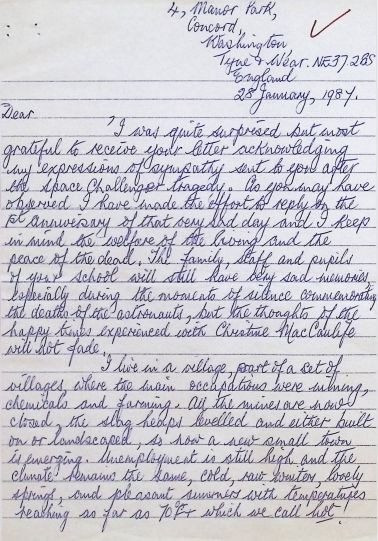 4, Manor Park,
Concord,
Washington,
Tyne & Wear. NE37 2BS
England
28 January, 1987.
Dear
I was quite surprised but most
grateful to receive your letter acknowledging
my expressions of sympathy sent to you after
the space Challenger tragedy. As you may have
observed I have made the effort to reply on the
1st Anniversary of that very sad day and I keep
in mind the welfare of the living and the
peace of the dead. The family, staff and pupils
of your school will still have very sad memories,
especially during the moments of silence commemorating
the deaths of the astronauts, but the thoughts of the
happy times experienced with Christine MacCaulife
will not fade.
I live in a village, part of a set of
villages, where the main occupations were mining,
chemicals and farming. All the mines are now
closed, the slag heaps levelled and either built
on or landscaped, so now a new small town
is emerging. Unemployment is still high and the
climate remains the same, cold, raw winters, lovely
springs, and pleasant summers with temperatures
reaching as far as 70°F which we call hot!